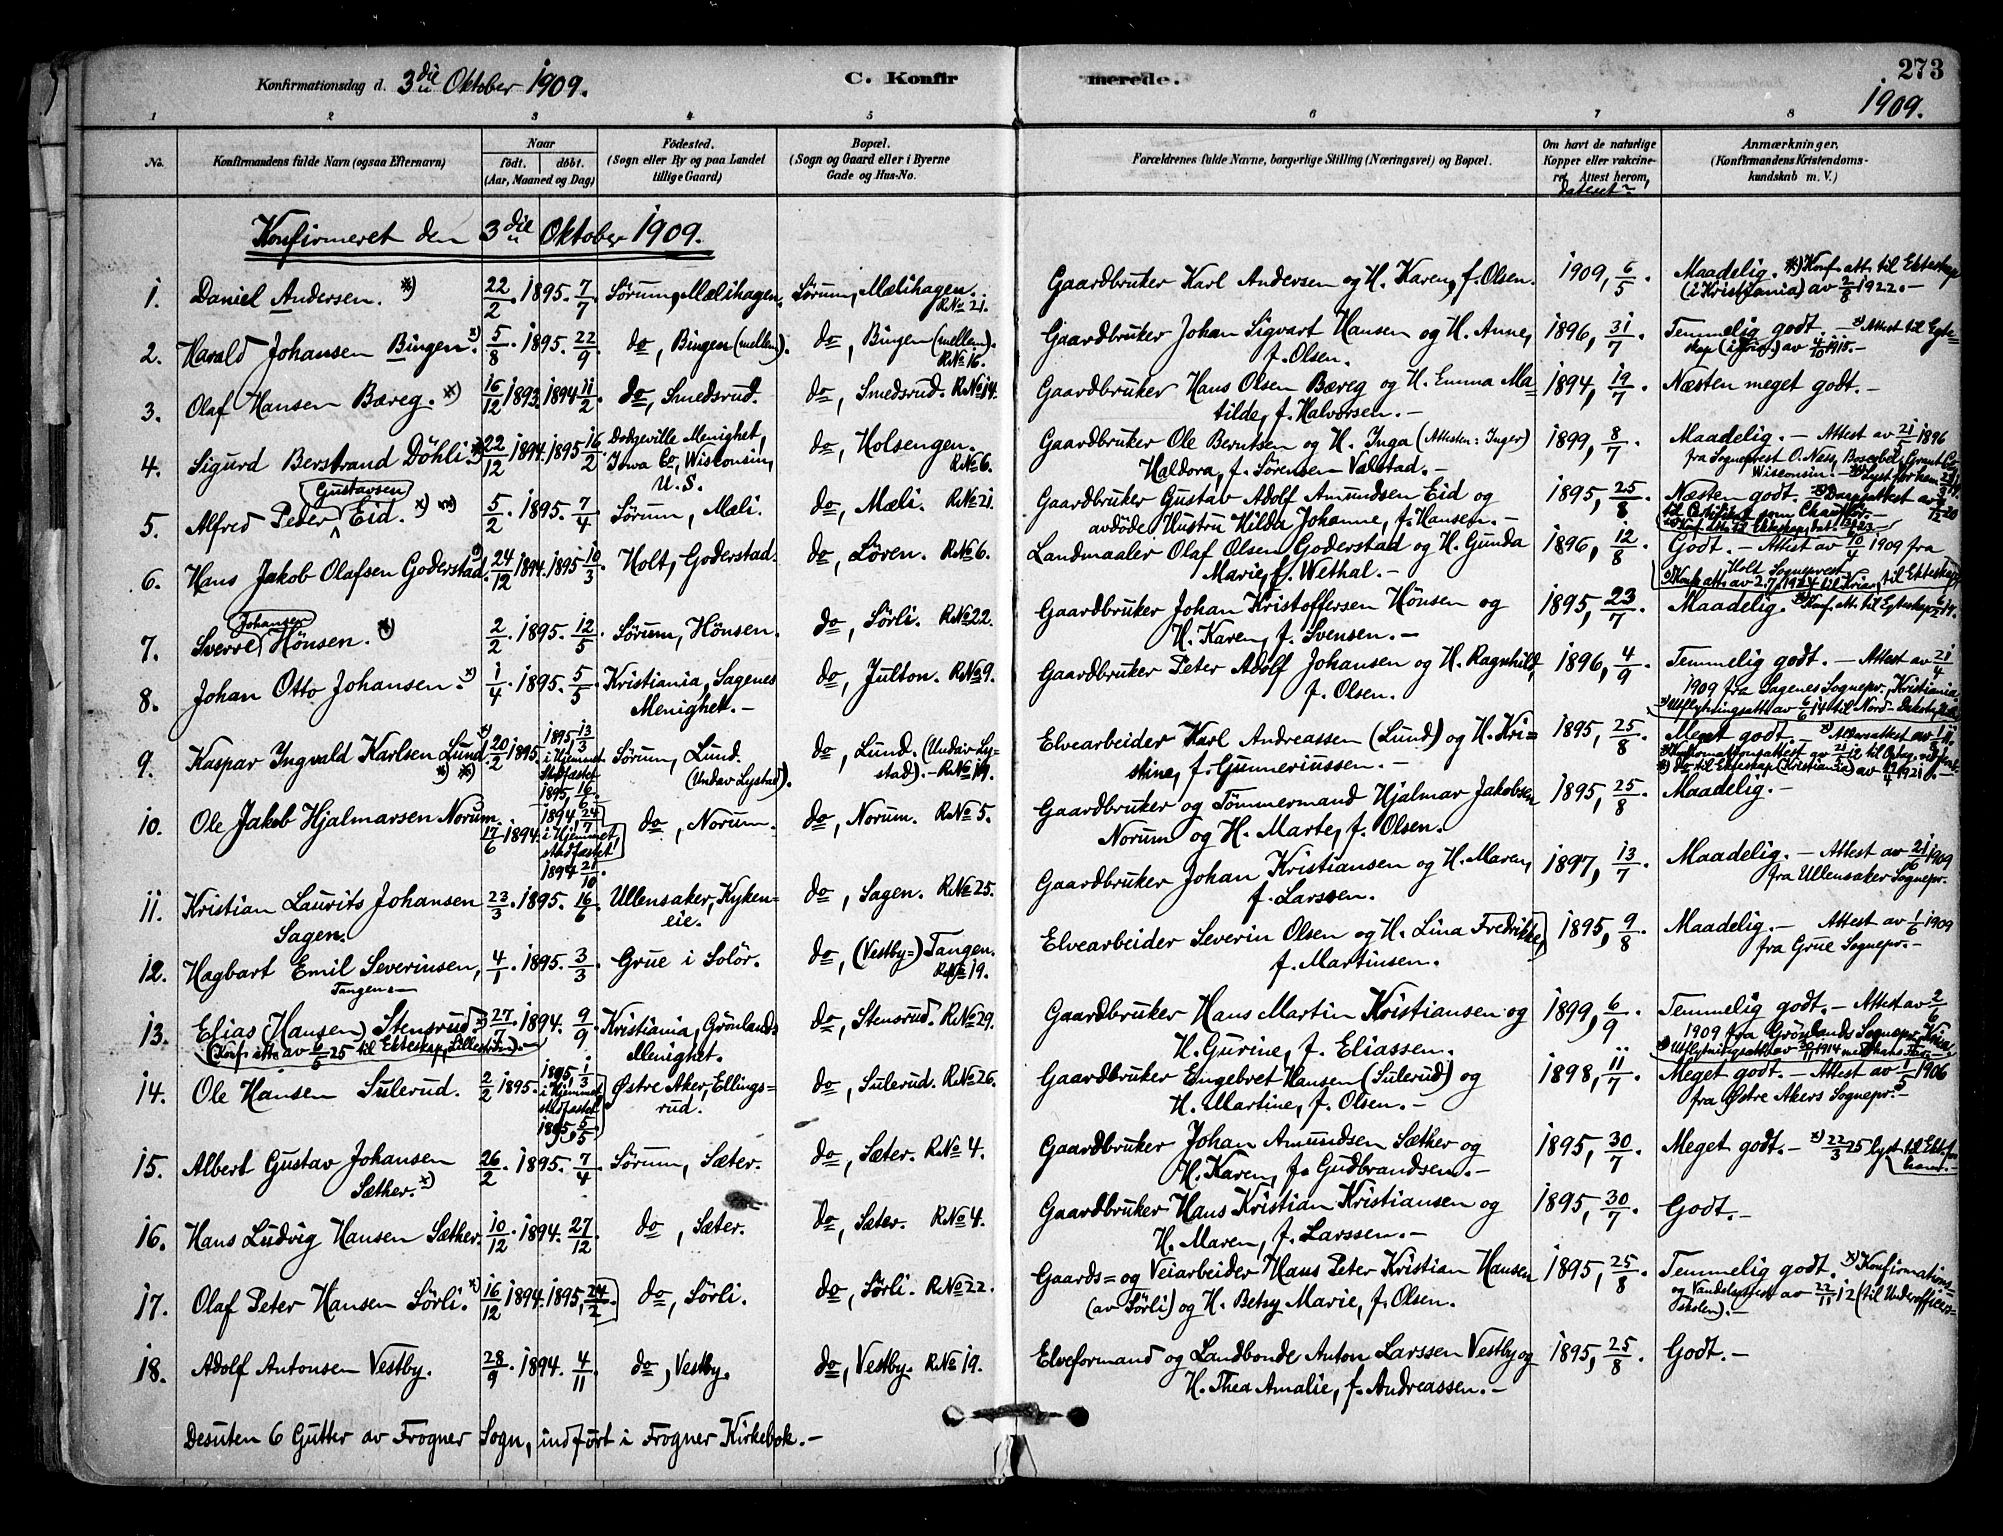 Konfirmationsdag d. 3die Oktober 1909.
C. Konfirmerede.
273
1909.
1 2 3 4 5 6 7 8
No.
Konfirmandens fulde Navn (ogsaa Efternavn)
Naar
født. døbt.
(Aar, Maaned og Dag)
Fødested.
(Sogn eller By og paa Landet
tillige Gaard)
Bopæl.
(Sogn og Gaard eller i Byerne
Gade og Hus-No.
Forældrenes fulde Navne, borgerlige Stilling (Næringsvei) og Bopæl.
Om havt de naturlige
Kopper eller vakcine-
ret. Attest herom,
dateret?
Anmærkninger,
(Konfirmandens Kristendoms-
kundskab m. V.)
Konfirmeret den 3die Oktober 1909.
1. Daniel Andersen. *) 22/2. 1895. 7/7 Sørum, Mælihagen. Sørum, Mælihagen. R.No 21. Gaardbruker Karl Andersen og H. Karen, f. Olsen. 1909, 6/5. Maadelig. *) Konf. att. til Ekteskap
(i Kristiania) av 2/8 1922. –
2. Harald Johansen Bingen. x) 5/8. 1895. 22/9 do, Bingen (mellem). do, Bingen (mellem). R.No 16. Gaardbruker Johan Sigvart Hansen og H. Anne,
f. Olsen. 1896, 31/7. Temmelig godt. – x) Attest til Egte-
skap av 4/10 1915. –
3. Olaf Hansen Bæreg. *) 16/12 1893. 1894 11/2 do, Smedsrud. do, Smedsrud. R.No 14. Gaardbruker Hans Olsen Bæreg og H. Emma Ma-
tilde, f. Halvorsen. – 1894, 19/7. Næsten meget godt. –
4. Sigurd Berstrand Döhli. *) 22/12 1894. 1895 16/2 Dodgeville Menighet,
Iowa Co, Wisconsin,
U. S. do, Holsengen. R.No 6. Gaardbruker Ole Berntsen og H. Inga (Attesten: Inger)
Haldora, f. Sørensen Valstad. – 1899, 8/7. Maadelig. – Attest av 21/5 1896
fra Sogneprest O. Næss, Grant Co,
Wisconsin. –
5. Alfred Peder Gustavsen Eid. *) **) 5/2. 1895. 7/4 Sørum, Mæli. do, Mæli. R.No 21. Gaardbruker Gustav Adolf Amundsen Eid og
avdøde Hustru Hilda Johanne, f. Hansen. – 1895, 25/8. Næsten godt. – Daapsattest av 9/12 20
til Certifikat som Chauffør. –
6. Hans Jakob Olafsen Goderstad. 24/12 1894. 1895 10/3 Holt, Goderstad. do, Lören. R.No 6. Landmaaler Olaf Olsen Goderstad og H. Gunda
Marie, f. Wethal. – 1896, 12/8. Godt. – Attest av 10/4 1909 fra
Holt Sogneprest
Konf. att. av 2.7.1924 til Kria, til Ekteskap
7. Sverre Johansen Hönsen. *) 2/2. 1895. 12/5 Sørum, Hönsen. do, Sörli. R.No 22. Gaardbruker Johan Kristoffersen Hönsen og
H. Karen, f. Svensen. – 1895, 23/7. Maadelig. *) Konf. att. til Egteskap 6/2 19.
8. Johan Otto Johansen. x) 1/4. 1895. 5/5 Kristiania, Sagenes
Menighet. – do, Julton. R.No 9. Gaardbruker Peter Adolf Johansen og H. Ragnhild,
f. Olsen. 1896, 4/9. Temmelig godt. – Attest av 21/4
1909 fra Sagenes Sognepr., Kristiania.
x) Utflytningsatt. av 6/6 14 til Nord-Dakota,
9. Kaspar Ingvald Karlsen Lund. x) *) *) 20/2 1895. 1895, 13/3
i Hjemmet,
stadfæstet
1895, 16/6. Sørum, Lund.
(Undav Lystad). do, Lund. (Undav Ly-
stad). – R.No 19. Elvearbeider Karl Andreassen (Lund) og H. Kri-
stine, f. Gunneriussen. – 1895, 25/8. Meget godt. –
do til Ekteskap (Kristiania) av 19/4 1921. –
10. Ole Jakob Hjalmarsen Norum. 17/6 1894. 1894, 24/7
i Hjemmet,
stadfæstet
1894 21/10. do, Norum. do, Norum. R.No 5. Gaardbruker og Tömmermand Hjalmar Jakobsen
Norum og H. Marte, f. Olsen. 1895, 25/8. Maadelig. –
11. Kristian Laurits Johansen
Sagen. 23/3. 1895. 16/6 Ullensaker, Kyken-
eie. do, Sagen. R.No 25. Gaardbruker Johan Kristiansen og H. Maren,
f. Larssen. 1897, 13/7. Maadelig. – Attest av 21/6 1909
fra Ullensaker Sognepr.
12. Hagbart Emil Severinsen,
Tangen. – 4/1. 1895. 3/3 Grue i Solör. do, (Vestby=) Tangen. R.No 19. Elvearbeider Severin Olsen og H. Lina Fredrikke,
f. Martinsen. 1895, 9/8. Maadelig. – Attest av 1/6 1909
fra Grue Sognepr. –
13. Elias (Hansen) Stensrud. x)
(Konf. att. av 6/5 25 til Ekteskap, Lillestrøm). – 27/7. 1894. 9/9 Kristiania, Grönlands
Menighet. do, Stensrud. R.No 29. Gaardbruker Hans Martin Kristiansen og
H. Gurine, f. Eliassen. 1899, 6/9. Temmelig godt. – Attest av 2/6
1909 fra Grönlands Sognepr., Kria.
14. Ole Hansen Sulerud. 2/2 1895. 1895, 1/3
i Hjemmet,
stadfæstet
1895, 5/5. Østre Aker, Ellings-
rud. do, Sulerud. R.No 26. Gaardbruker Engebret Hansen (Sulerud) og
H. Martine, f. Olsen. – 1898, 11/7. Meget godt. – Attest av 1/5 1906
fra Østre Akers Sognepr. –
15. Albert Gustav Johansen
Sæther. x) 26/2. 1895. 7/4 Sørum, Sæter. do, Sæter. R.No 4. Gaardbruker Johan Amundsen Sæther og
H. Karen, f. Gudbrandsen. – 1895, 30/7. Meget godt. – x) 22/3 25 lyst til Ekt. for
ham. –
16. Hans Ludvig Hansen Sæther. 10/12. 1894. 27/12 do, Sæter. do, Sæter. R.No 4. Gaardbruker Hans Kristian Kristiansen og
H. Maren, f. Larssen. – 1895, 30/7. Godt. –
17. Olaf Peter Hansen Sörli. x) 16/12 1894. 1895, 24/2. do, Sörli. do, Sörli. R.No 22. Gaards= og Veiarbeider Hans Peter Kristian Hansen
(av Sörli) og H. Betsy Marie, f. Olsen. 1895, 25/8. Temmelig godt. x) Konfirmations-
og Vandelsattest av 22/11 12 (til Underofficers=
skolen). –
18. Adolf Antonsen Vestby. 28/9. 1894. 4/11 do, Vestby. do, Vestby. R.No 19. Elveformand og Landbonde Anton Larssen Vestby og
H. Thea Amalie, f. Andreassen. – 1895, 25/8. Godt. –
Desuten 6 Gutter av Frogner Sogn, indført i Frogner Kirkebok. –